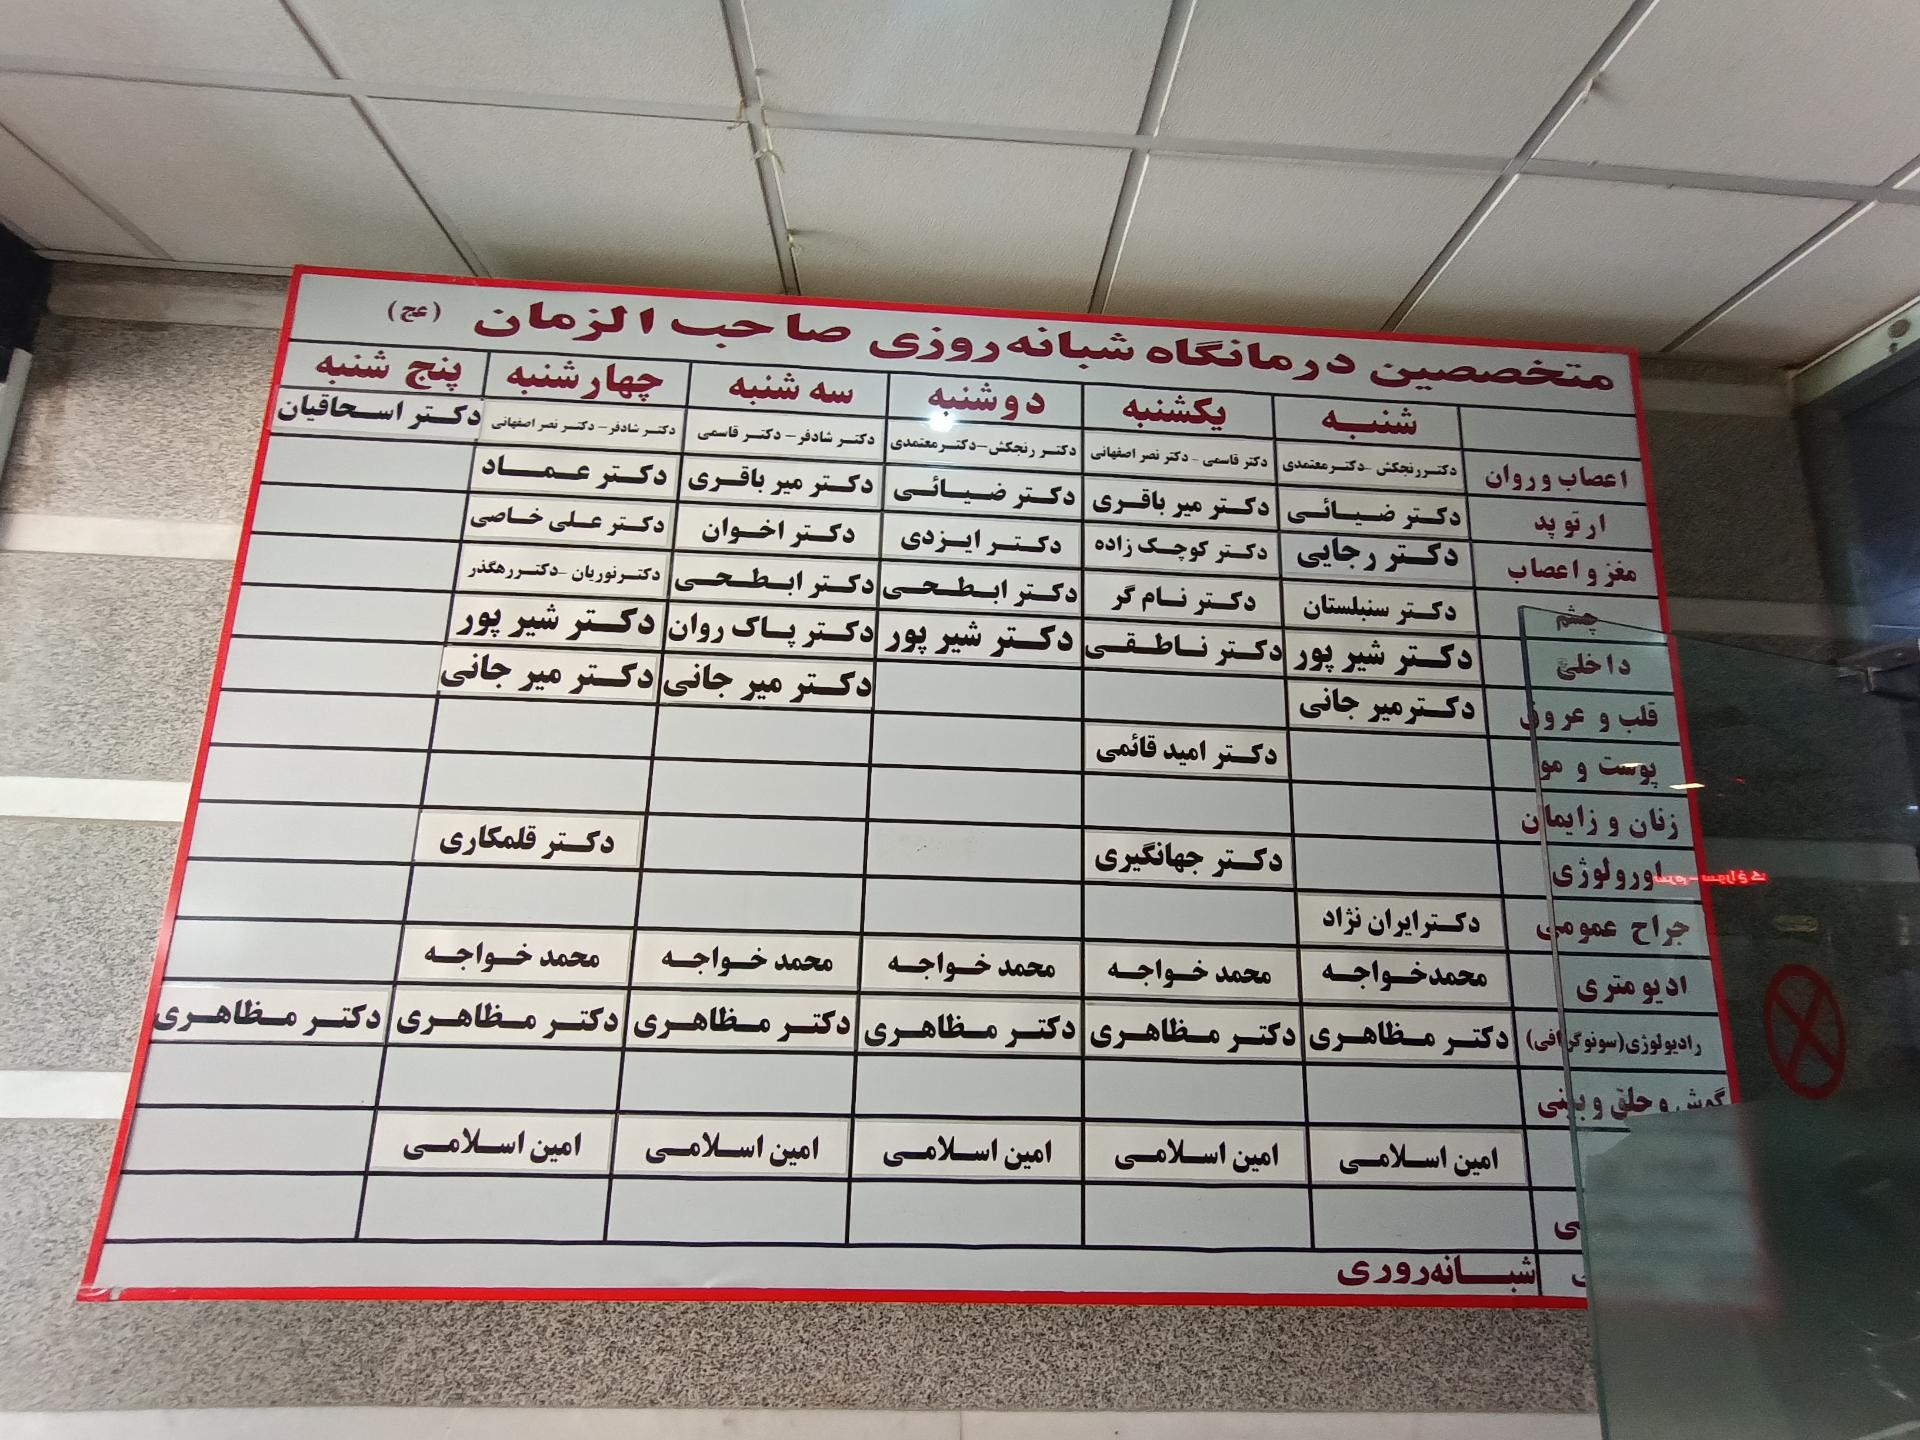 متخصصین درمانگاه شبانه‌روزی صاحب الزمان (عج)
شنبه یکشنبه دوشنبه سه شنبه چهارشنبه پنج شنبه
اعصاب و روان دکتررنجکش - دکترمعتمدی دکتر قاسمی - دکتر نصر اصفهانی دکتر رنجکش - دکترمعتمدی دکتر شادفر - دکتر قاسمی دکتر شادفر - دکتر نصر اصفهانی دکتر اسحاقیان
ارتوپد دکتر ضیائی دکتر میر باقری دکتر ضیائی دکتر میر باقری دکتر عماد
مغز و اعصاب دکتر رجایی دکتر کوچک زاده دکتر ایزدی دکتر اخوان دکتر علی خاصی
چشم دکتر سنبلستان دکتر نام گر دکتر ابطحی دکتر ابطحی دکترنوریان - دکتررهگذر
داخلی دکتر شیر پور دکتر ناطقی دکتر شیر پور دکتر پاک روان دکتر شیر پور
قلب و عروق دکترمیر جانی دکتر میر جانی دکتر میر جانی
پوست و مو دکتر امید قائمی
زنان و زایمان
اورولوژی دکتر جهانگیری دکتر قلمکاری
جراح عمومی دکترایران نژاد
ادیومتری محمدخواجه محمد خواجه محمد خواجه محمد خواجه محمد خواجه
رادیولوژی(سونوگرافی) دکتر مظاهری دکتر مظاهری دکتر مظاهری دکتر مظاهری دکتر مظاهری دکتر مظاهری
گوش و حلق و بینی
امین اسلامی امین اسلامی امین اسلامی امین اسلامی امین اسلامی
شبانه‌روری